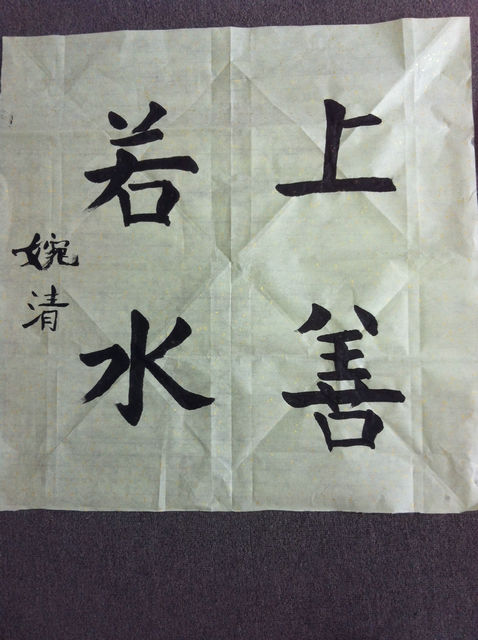 上善
若水
婉清